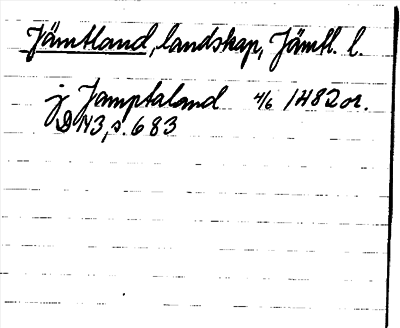 Jämtland, landskap, Jämtl. l.
j Jamptaland 4/6 1482 or.
DN3, s. 683